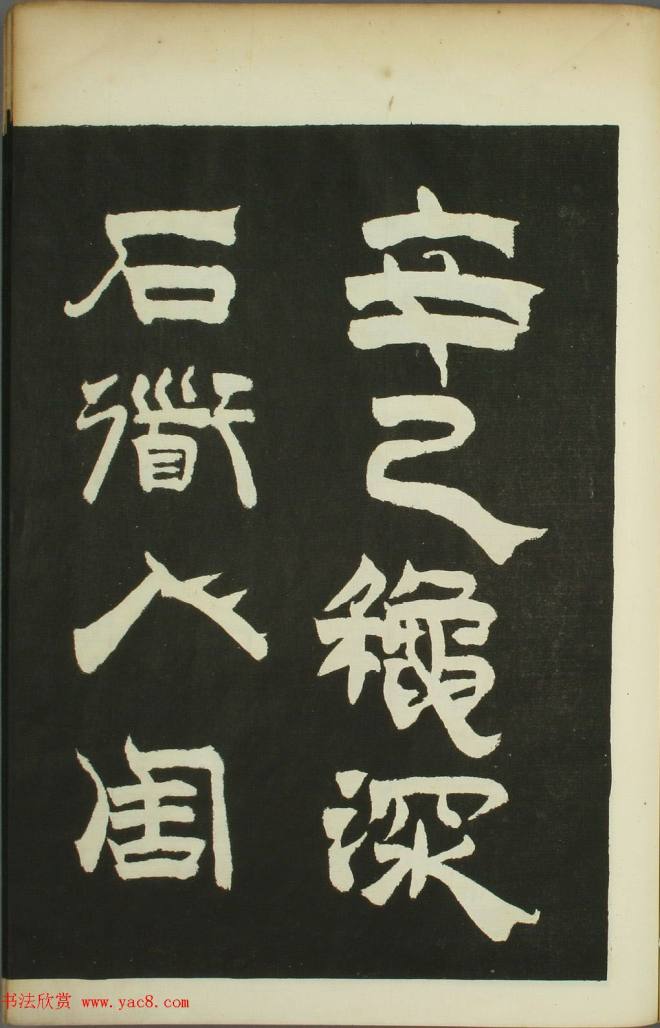 辛巳穐深
石衜人周
书法欣赏 www.yac8.com